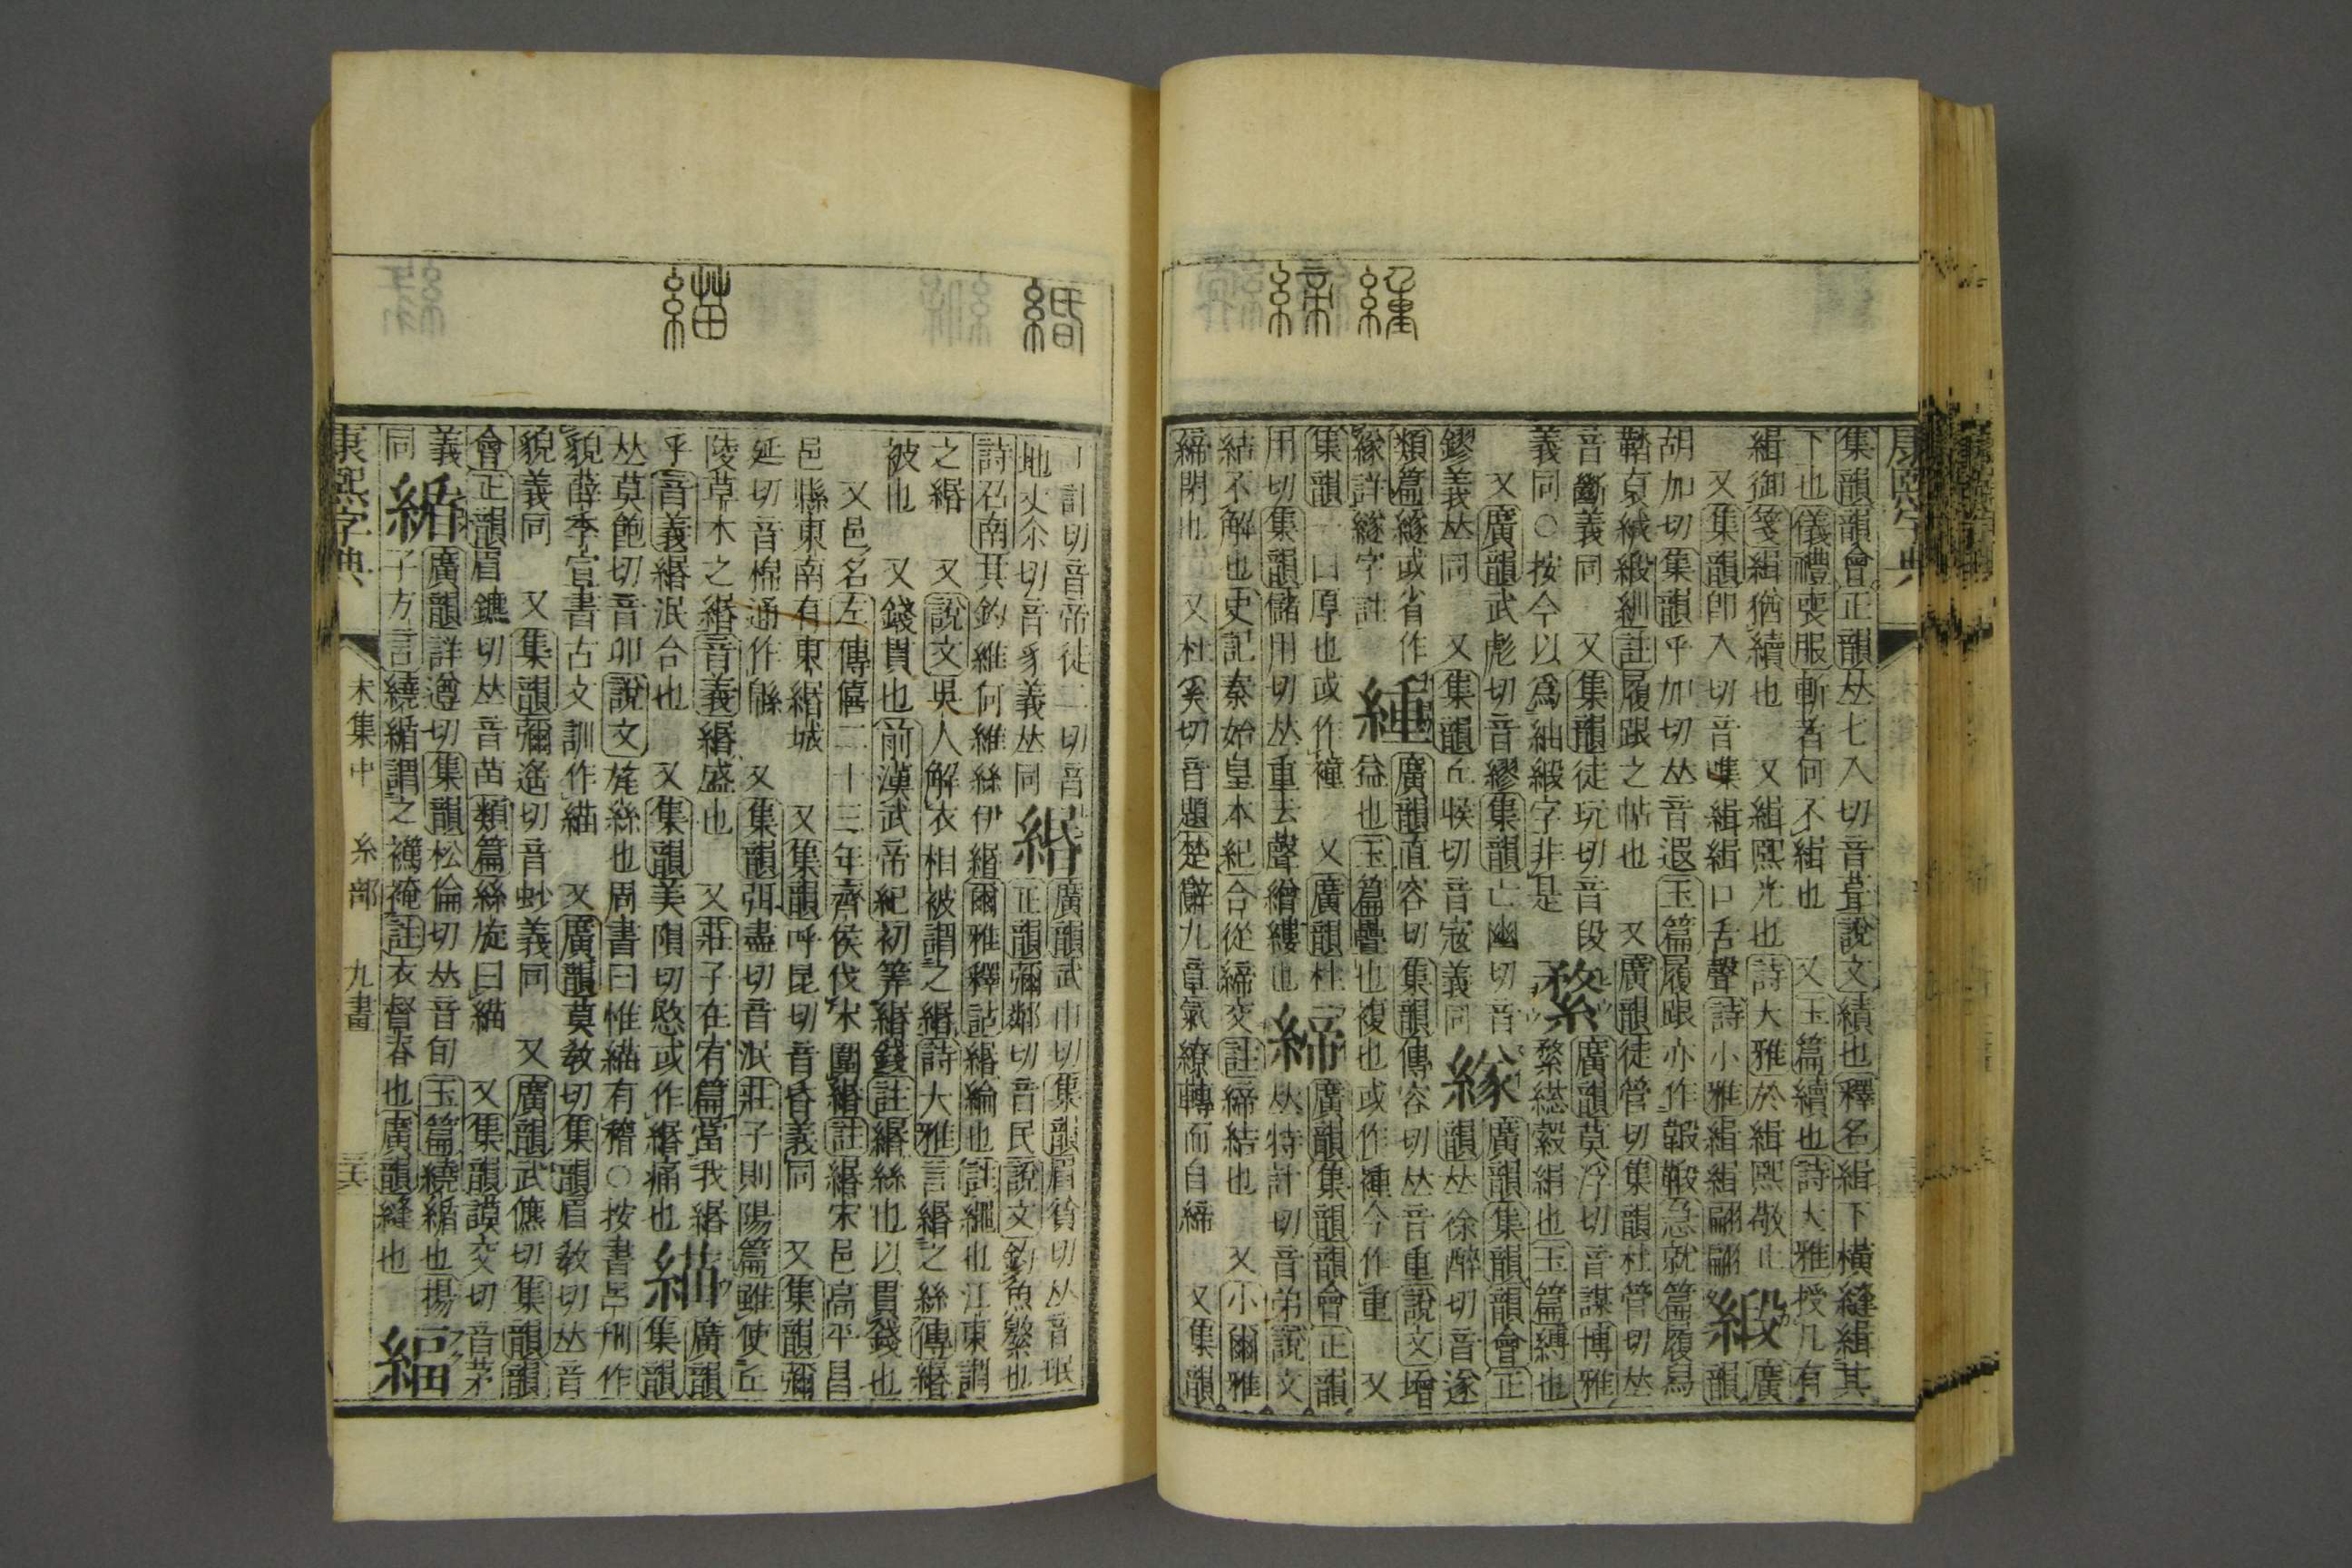 集韻韻會正韻𠀤七入切音葺說文績也釋名緝下橫縫緝其
下也儀禮喪服斬者何不緝也 又玉篇續也詩大雅授几有
緝御箋緝猶續也 又緝熙光也詩大雅於緝熙敬止 緞 廣
又集韻卽入切音喋緝緝口舌聲詩小雅緝緝翩翩 韻
胡加切集韻乎加切𠀤音遐玉篇履跟亦作鞎急就篇履舄
鞜裒絨緞紃註履跟之帖也 又廣韻徒管切集韻杜管切𠀤
音斷義同 又集韻徒玩切音段 䋷 廣韻莫浮切音謀博雅
義同○按今以爲紬緞字非是 䋷總縠絹也玉篇縛也
又廣韻武彪切音繆集韻亡幽切音 廣韻集韻韻會正
鏐義𠀤同 又集韻丘堠切音寇義同 韻𠀤徐醉切音遂
類篇繸或省作 緟 廣韻直容切集韻傳容切𠀤音重說文增
詳繸字註 益也玉篇疊也複也或作褈今作重 又
集韻一曰厚也或作褈 又廣韻柱
用切集韻儲用切𠀤重去聲繒縷也 締 廣韻集韻韻會正韻
𠀤特計切音弟說文
結不解也史記秦始皇本紀合從締交註締結也 又小爾雅
締閉也 又杜奚切音題楚辭九章氣繚轉而自締 又集韻
丁計切音帝徒二切音 緡 廣韻武巾切集韻眉貧切𠀤音珉
地丈尒切音豸義𠀤同 正韻彌鄰切音民說文釣魚繁也
詩召南其釣維何維絲伊緡爾雅釋詁緡綸也註繩也江東謂
之緡 又說文吳人解衣相被謂之緡詩大雅言緡之絲傳緡
被也 又錢貫也前漢武帝紀初筭緡錢註緡絲也以貫錢也
又邑名左傳僖二十三年齊侯伐宋圍緡註緡宋邑高平昌
邑縣東南有東緡城 又集韻呼昆切音昏義同 又集韻彌
延切音棉通作緜 又集韻弭盡切音泯莊子則陽篇雖使丘
陵草木之緡音義緡盛也 又莊子在宥篇當我緡
乎音義緡泯合也 又集韻美隕切愍或作緡痛也 緢 廣韻
集韻
𠀤莫飽切音卯說文旄絲也周書曰惟緢有稽○按書呂刑作
貌薛季宣書古文訓作緢 又廣韻莫敎切集韻眉敎切𠀤音
貌義同 又集韻彌遙切音蚴義同 又廣韻武儦切集韻韻
會正韻眉鑣切𠀤音苗類篇絲旋曰緢 又集韻謨交切音茅
義 緧 廣韻詳遵切集韻松倫切𠀤音旬玉篇繞緧也揚
同 子方言繞緧謂之䙡裺註衣督脊也廣韻縫也 緼
康熙字典 未集中 糸部 九畫
康熙字典